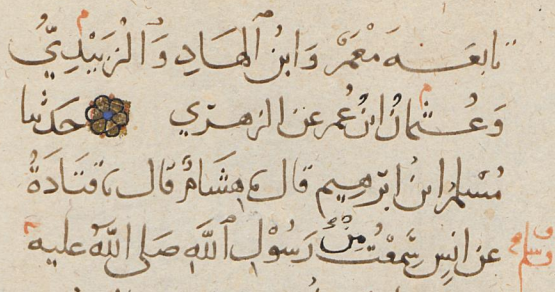 تابعه مَعْمَر وَابنُ الهَادِ وَالزُبَيْدِيُّ
وَعُثمانُ ابنُ عُمر عن الزهري حَدثنا
مُسْلِمُ ابنُ ابرهيم قال ثنا هِشَامٌ قال ثنا قَتَادَةُ
عن انسٍ سَمعْتُ مِنْ رَسُوْلِ اللَّهِ صَلى اللَّهُ عليه وسلم